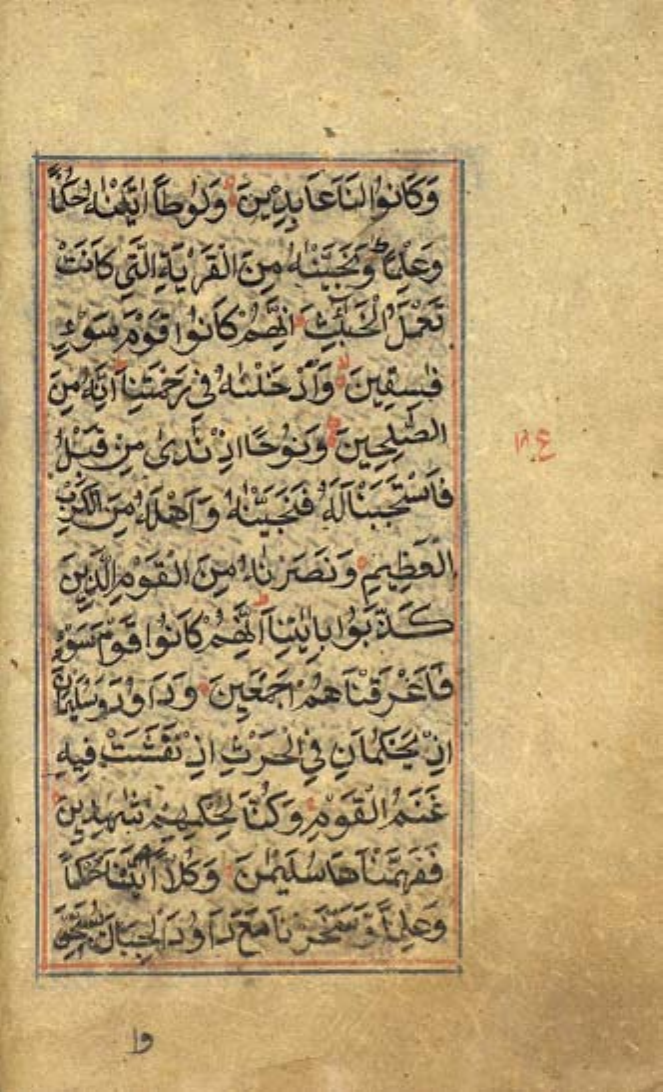 وَكَانُوا لَنَا عَابِدِيْنَ وَلُوْطًا اٰتَيْنٰهُ حُكْمًا
وَعِلْمًا وَّنَجَّيْنٰهُ مِنَ الْقَرْيَةِ الَّتِيْ كَانَتْ
تَعْمَلُ الْخَبٰٓئِثَ اِنَّهُمْ كَانُوْا قَوْمَ سَوْءٍ
فٰسِقِيْنَ وَاَدْخَلْنٰهُ فِيْ رَحْمَتِنَا اِنَّهٗ مِنَ
الصّٰلِحِيْنَ وَنُوْحًا اِذْ نَادٰى مِنْ قَبْلُ
فَاسْتَجَبْنَا لَهٗ فَنَجَّيْنٰهُ وَاَهْلَهٗ مِنَ الْكَرْبِ
الْعَظِيْمِ وَنَصَرْنَاهُ مِنَ الْقَوْمِ الَّذِيْنَ
كَذَّبُوْا بِاٰيٰتِنَا اِنَّهُمْ كَانُوْا قَوْمَ سَوْءٍ
فَاَغْرَقْنَاهُمْ اَجْمَعِيْنَ وَدَاوٗدَ وَسُلَيْمَانَ
اِذْ يَحْكُمَانِ فِي الْحَرْثِ اِذْ نَفَشَتْ فِيْهِ
غَنَمُ الْقَوْمِ وَكُنَّا لِحُكْمِهِمْ شٰهِدِيْنَ
فَفَهَّمْنَاهَا سُلَيْمٰنَ وَكُلًّا اٰتَيْنَا حُكْمًا
وَعِلْمًا وَّسَخَّرْنَا مَعَ دَاوٗدَ الْجِبَالَ يُسَبِّحْنَ